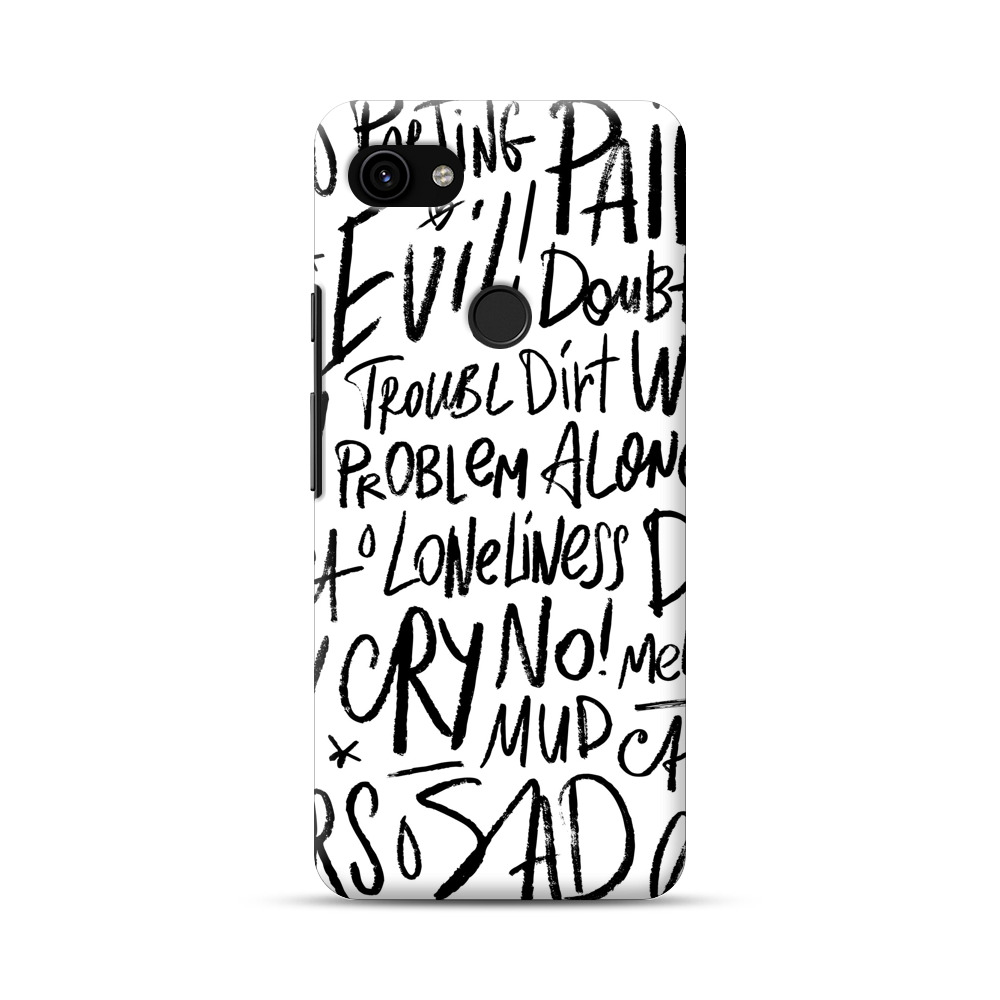 PorTiNG PAii
Evil! DouBt
TROUBL Dirt W
PROBLeM ALONe
A LONeLiNess D
CRY NO! Mel
MUD CA
RS SAD